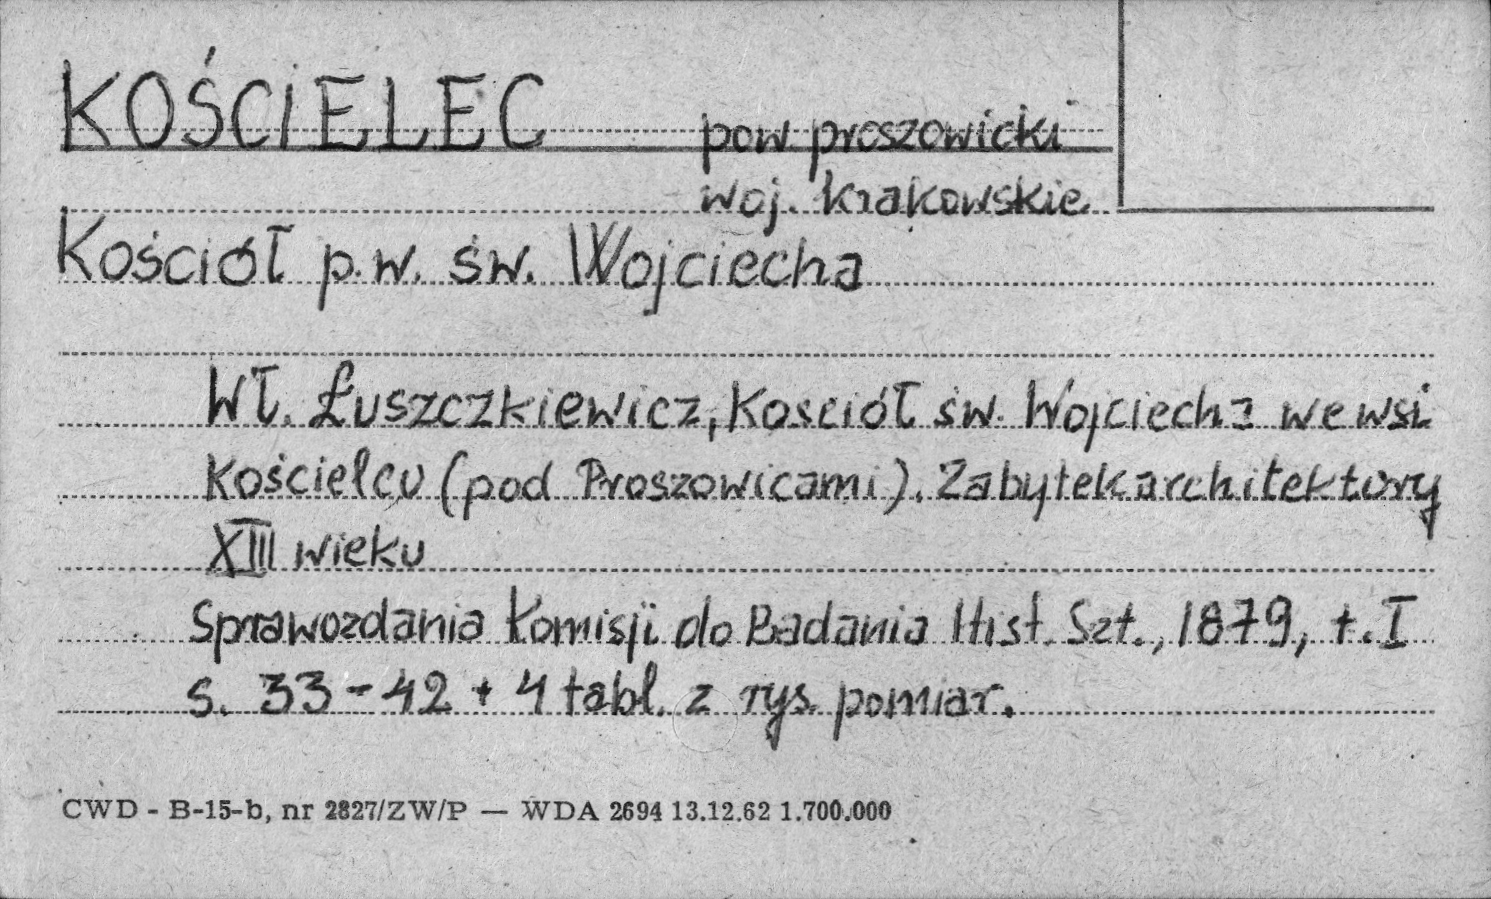 KOŚCIELEC
pow proszowicki
woj. krakowskie
Kościół p.w. św. Wojciecha
Wł. Łuszczkiewicz, Kosciół św. Wojciecha we wsi
Kościelcu (pod Proszowicami). Zabytek architektury
XIII wieku
Sprawozdania Komisji do Badania Hist. Szt., 1879, t. I
s. 33-42 + 4 tabl. z rys. pomiar.
CWD - B-15-b, nr 2827/ZW/P — WDA 2694 13.12.62 1.700.000